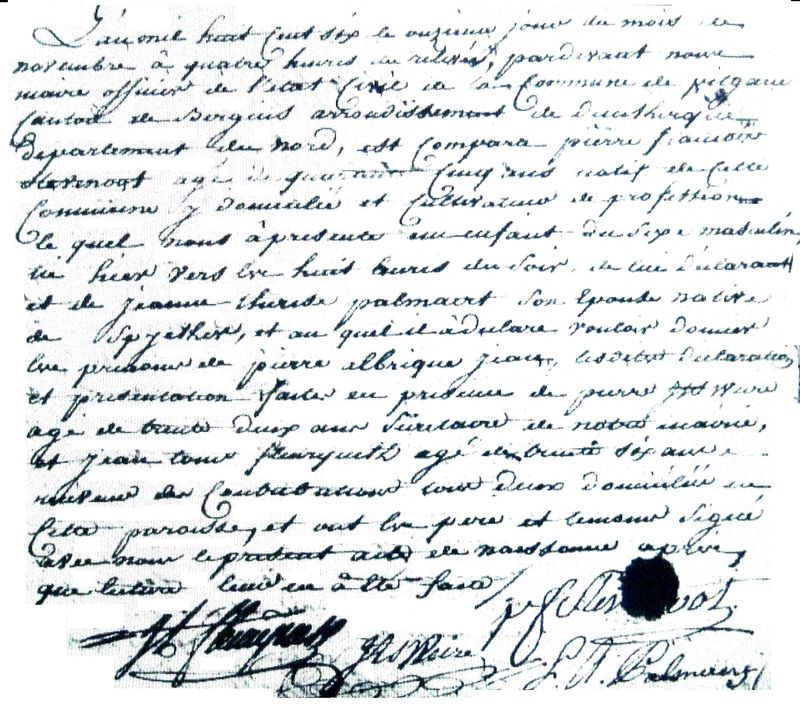 L'an mil huit cent six le onzieme jour du mois de
novembre à quatre heures de relevée, pardevant nous
maire officier de l'état Civil de la Commune de pitgam
Canton de Bergues arrondissement de dunkerque
departement du nord, est comparu pierre francois
agé de quarante Cinq ans natif de Cette
Commune y domicilié et Cultivateur de profession
le quel nous à presenté un enfant du sexe masculin,
né hier vers les huit heures du soir, de lui déclarant
et de jeanne therese palmaert son Epouse native
de Spycker, et au quel il à déclaré vouloir donner
les prenoms de pierre albrique jean, lesdites déclaration
et presentation faites en presence de pierre
agé de trente deux ans Sécretaire de notre mairie,
et jean louis agé de trente six ans
receveur des Contributions tous deux domiciliés en
Cette paroisse, et ont les pere et temoins signé
avec nous le present acte de naissance après
que lecture leur en à été faite